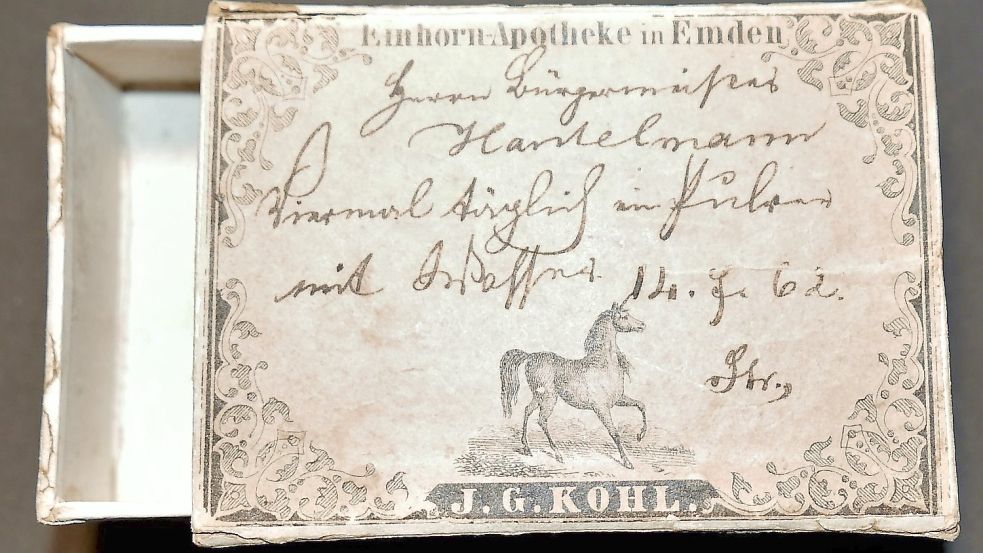 Einhorn-Apotheke in Emden
Herrn Bürgermeister
Hantelmann
Viermal täglich ein Pulver
mit Wasser. 14. 7. 62.
J. G. KOHL.